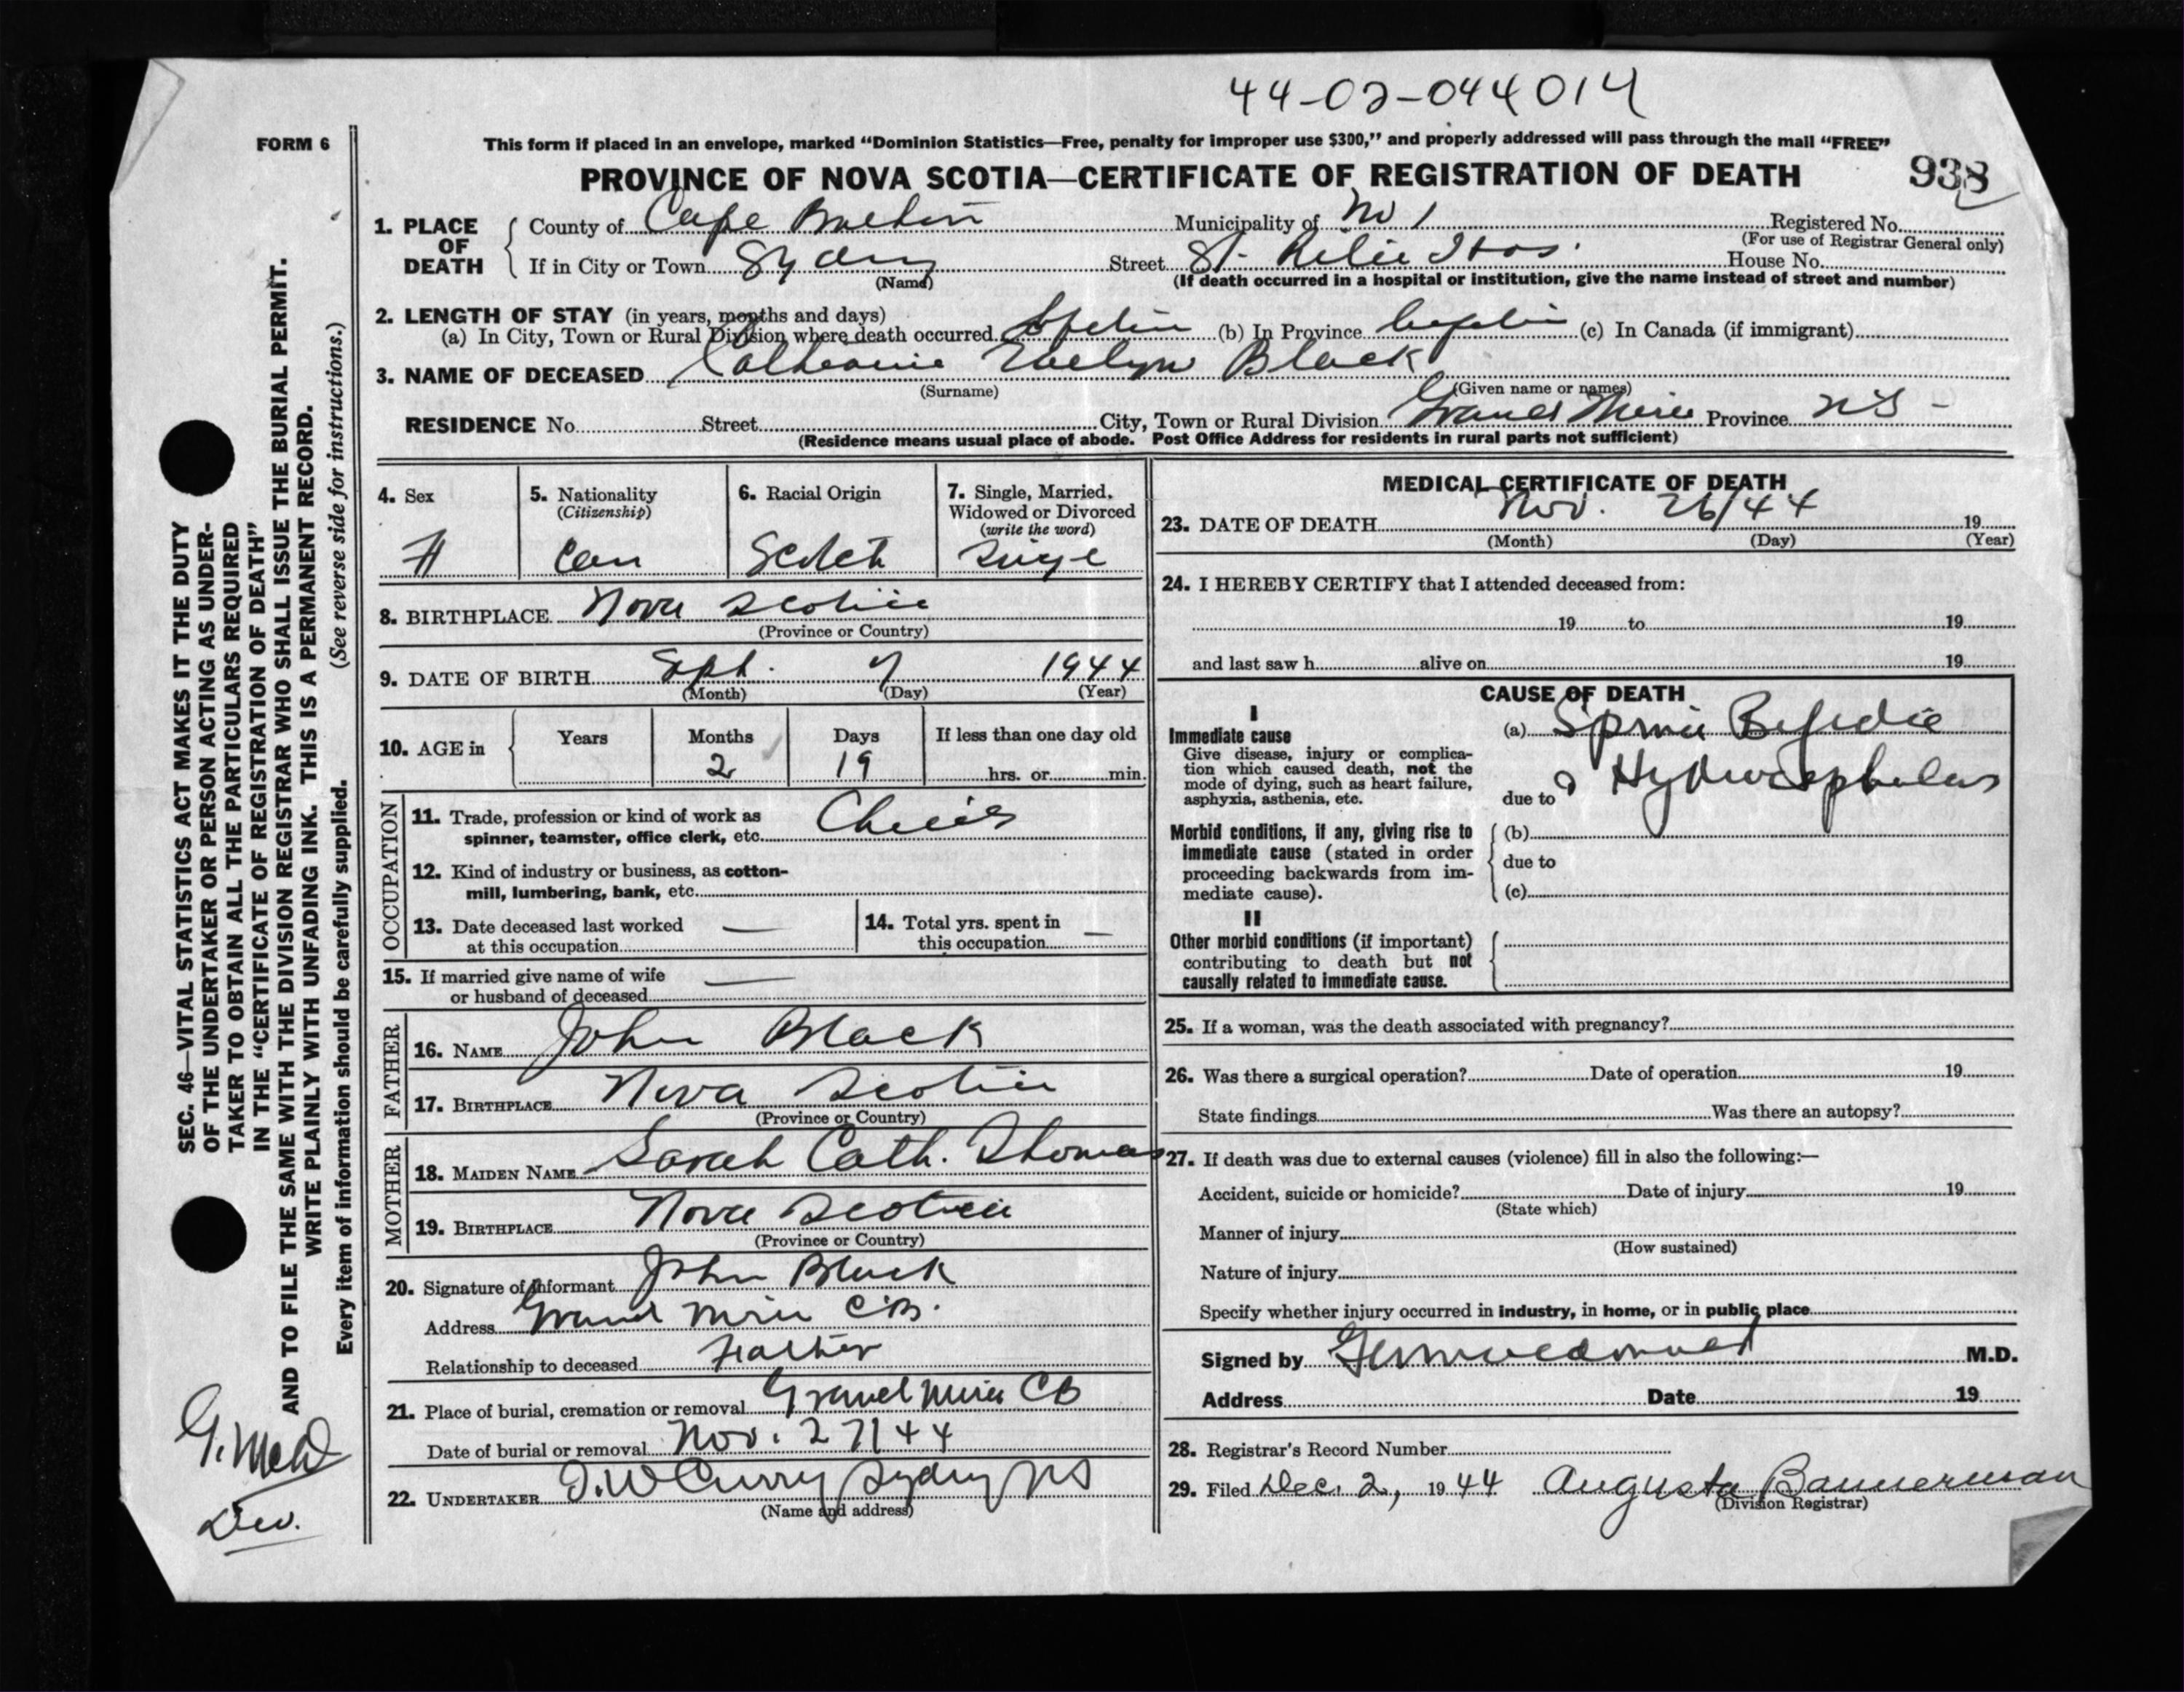 44-02-044014
FORM 6
This form if placed in an envelope, marked "Dominion Statistics—Free, penalty for improper use $300," and properly addressed will pass through the mail "FREE"
PROVINCE OF NOVA SCOTIA—CERTIFICATE OF REGISTRATION OF DEATH
938
1. PLACE OF DEATH
County of Cape Breton Municipality of No 1 Registered No.
(For use of Registrar General only)
If in City or Town Sydney Street St. Hos. House No.
(Name) (If death occurred in a hospital or institution, give the name instead of street and number)
2. LENGTH OF STAY (in years, months and days)
(a) In City, Town or Rural Division where death occurred (b) In Province (c) In Canada (if immigrant)
3. NAME OF DECEASED Catherine Evelyn Black
(Surname) (Given name or names)
RESIDENCE No. Street City, Town or Rural Division Grand Mira Province NS -
(Residence means usual place of abode. Post Office Address for residents in rural parts not sufficient)
4. Sex
5. Nationality (Citizenship) Can
6. Racial Origin Scotch
7. Single, Married, Widowed or Divorced (write the word) Single
8. BIRTHPLACE Nova Scotia
(Province or Country)
9. DATE OF BIRTH Sept. 7 1944
(Month) (Day) (Year)
10. AGE in Years Months 2 Days 19 If less than one day old hrs. or min.
OCCUPATION
11. Trade, profession or kind of work as spinner, teamster, office clerk, etc.
12. Kind of industry or business, as cotton-mill, lumbering, bank, etc.
13. Date deceased last worked at this occupation —
14. Total yrs. spent in this occupation —
15. If married give name of wife or husband of deceased —
FATHER
16. NAME John Black
17. BIRTHPLACE Nova Scotia
(Province or Country)
MOTHER
18. MAIDEN NAME Sarah Cath. Thomas
19. BIRTHPLACE Nova Scotia
(Province or Country)
20. Signature of Informant John Black
Address Grand Mira C.B.
Relationship to deceased Father
21. Place of burial, cremation or removal Grand Mira CB
Date of burial or removal Nov. 27/44
22. UNDERTAKER T.W Curry Sydney NS
(Name and address)
MEDICAL CERTIFICATE OF DEATH
23. DATE OF DEATH Nov. 26/44 19
(Month) (Day) (Year)
24. I HEREBY CERTIFY that I attended deceased from:
19 to 19
and last saw h alive on 19
CAUSE OF DEATH
I
Immediate cause
Give disease, injury or complication which caused death, not the mode of dying, such as heart failure, asphyxia, asthenia, etc.
(a) Spina Bifida
due to Hydrocephalus
Morbid conditions, if any, giving rise to immediate cause (stated in order proceeding backwards from immediate cause).
(b)
due to
(c)
II
Other morbid conditions (if important) contributing to death but not causally related to immediate cause.
25. If a woman, was the death associated with pregnancy?
26. Was there a surgical operation? Date of operation 19
State findings Was there an autopsy?
27. If death was due to external causes (violence) fill in also the following:—
Accident, suicide or homicide? Date of injury 19
(State which)
Manner of injury
(How sustained)
Nature of injury
Specify whether injury occurred in industry, in home, or in public place
Signed by M.D.
Address Date 19
28. Registrar's Record Number
29. Filed Dec. 2, 1944 Augusta Bannerman
(Division Registrar)
SEC. 46—VITAL STATISTICS ACT MAKES IT THE DUTY
OF THE UNDERTAKER OR PERSON ACTING AS UNDER-
TAKER TO OBTAIN ALL THE PARTICULARS REQUIRED
IN THE "CERTIFICATE OF REGISTRATION OF DEATH"
AND TO FILE THE SAME WITH THE DIVISION REGISTRAR WHO SHALL ISSUE THE BURIAL PERMIT.
WRITE PLAINLY WITH UNFADING INK. THIS IS A PERMANENT RECORD.
(See reverse side for instructions.)
Every item of information should be carefully supplied.